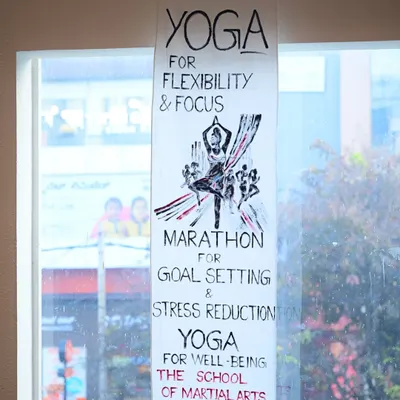 YOGA
FOR
FLEXIBILITY
& FOCUS
MARATHON
FOR
GOAL SETTING
&
STRESS REDUCTION
YOGA
FOR WELL-BEING
THE SCHOOL
OF MARTIAL ARTS